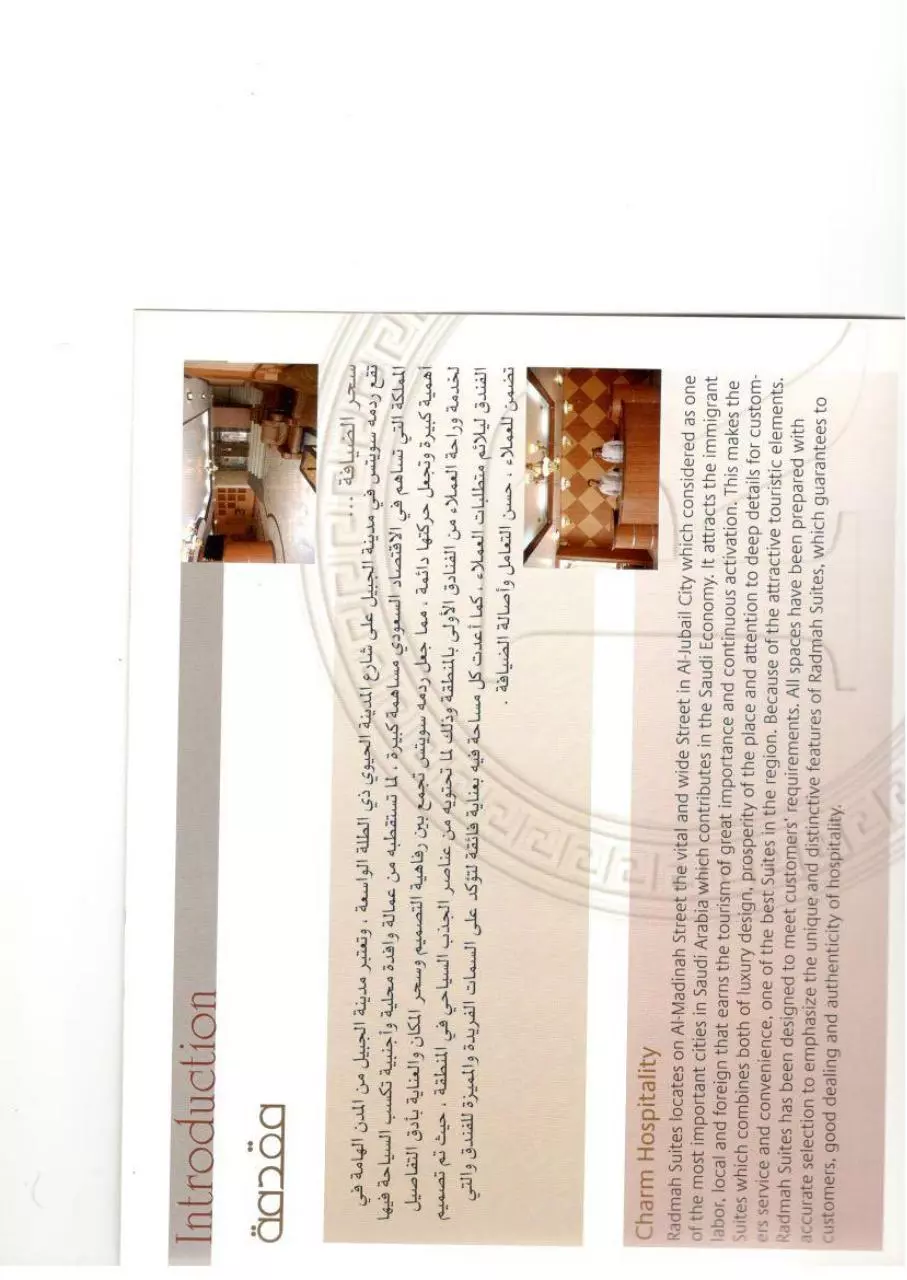 Introduction
مقدمة
سحر الضيافة ...
تقع ردمه سويتس في مدينة الجبيل على شارع المدينة الحيوي ذي الطلة الواسعة ، وتعتبر مدينة الجبيل من المدن الهامة في
المملكة التي تساهم في الاقتصاد السعودي مساهمة كبيرة ، لما تستقطبه من عمالة وافدة محلية وأجنبية تكسب السياحة فيها
أهمية كبيرة وتجعل حركتها دائمة ، مما جعل ردمه سويتس تجمع بين رفاهية التصميم وسحر المكان والعناية بأدق التفاصيل
لخدمة وراحة العملاء من الفنادق الأولى بالمنطقة وذلك لما تحتويه من عناصر الجذب السياحي في المنطقة ، حيث تم تصميم
الفندق ليلائم متطلبات العملاء ، كما أعدت كل مساحة فيه بعناية فائقة لتؤكد على السمات الفريدة والمميزة للفندق والتي
تضمن للعملاء ، حسن التعامل وأصالة الضيافة .
Charm Hospitality
Radmah Suites locates on Al-Madinah Street the vital and wide Street in Al-Jubail City which considered as one
of the most important cities in Saudi Arabia which contributes in the Saudi Economy. It attracts the immigrant
labor, local and foreign that earns the tourism of great importance and continuous activation. This makes the
Suites which combines both of luxury design, prosperity of the place and attention to deep details for custom-
ers service and convenience, one of the best Suites in the region. Because of the attractive touristic elements.
Radmah Suites has been designed to meet customers' requirements. All spaces have been prepared with
accurate selection to emphasize the unique and distinctive features of Radmah Suites, which guarantees to
customers, good dealing and authenticity of hospitality.